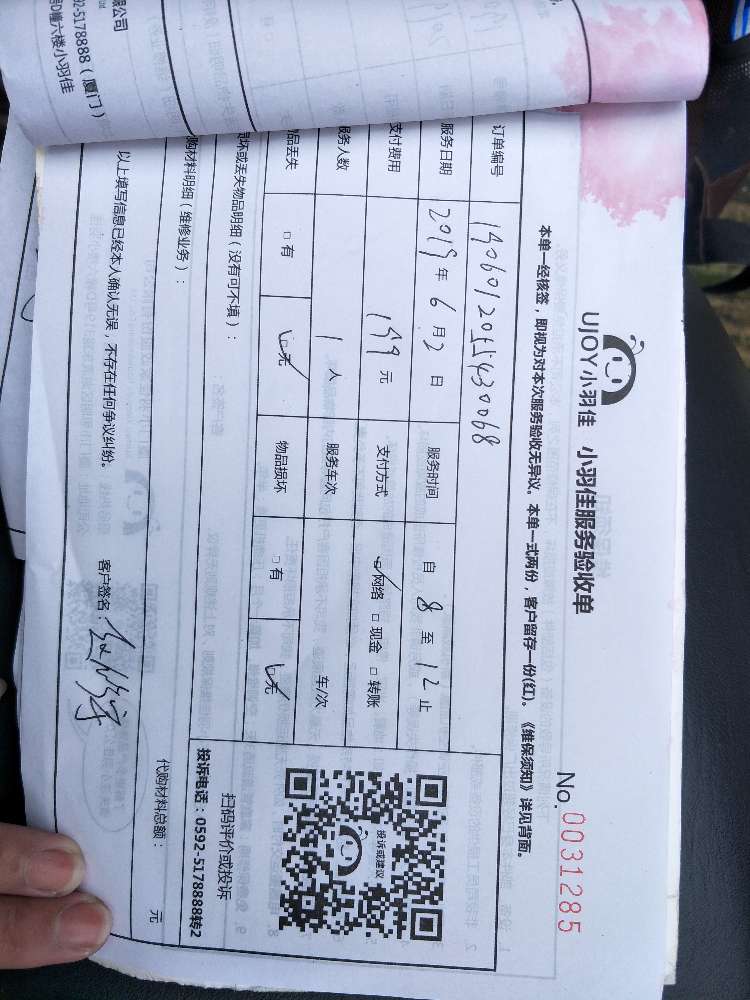 限公司
92-5178888（厦门）
D幢六楼小羽佳
UJOY小羽佳 小羽佳服务验收单
No. 0031285
本单一经核签，即视为对本次服务验收无异议。本单一式两份，客户留存一份(红)。《维保须知》详见背面。
订单编号 1906012055430068
服务日期 2019年 6月 2日 服务时间 自 8 至 12 止
支付费用 199 元 支付方式 ☑网络 □现金 □转账
服务人数 1 人 服务车次 车/次
物品丢失 □有 ☑无 物品损坏 □有 ☑无
投诉或建议
扫码评价或投诉
投诉电话：0592-5178888转2
损坏或丢失物品明细（没有可不填）：
代购材料明细（维修业务）：
代购材料总额： 元
以上填写信息已经本人确认无误，不存在任何争议纠纷。 客户签名：